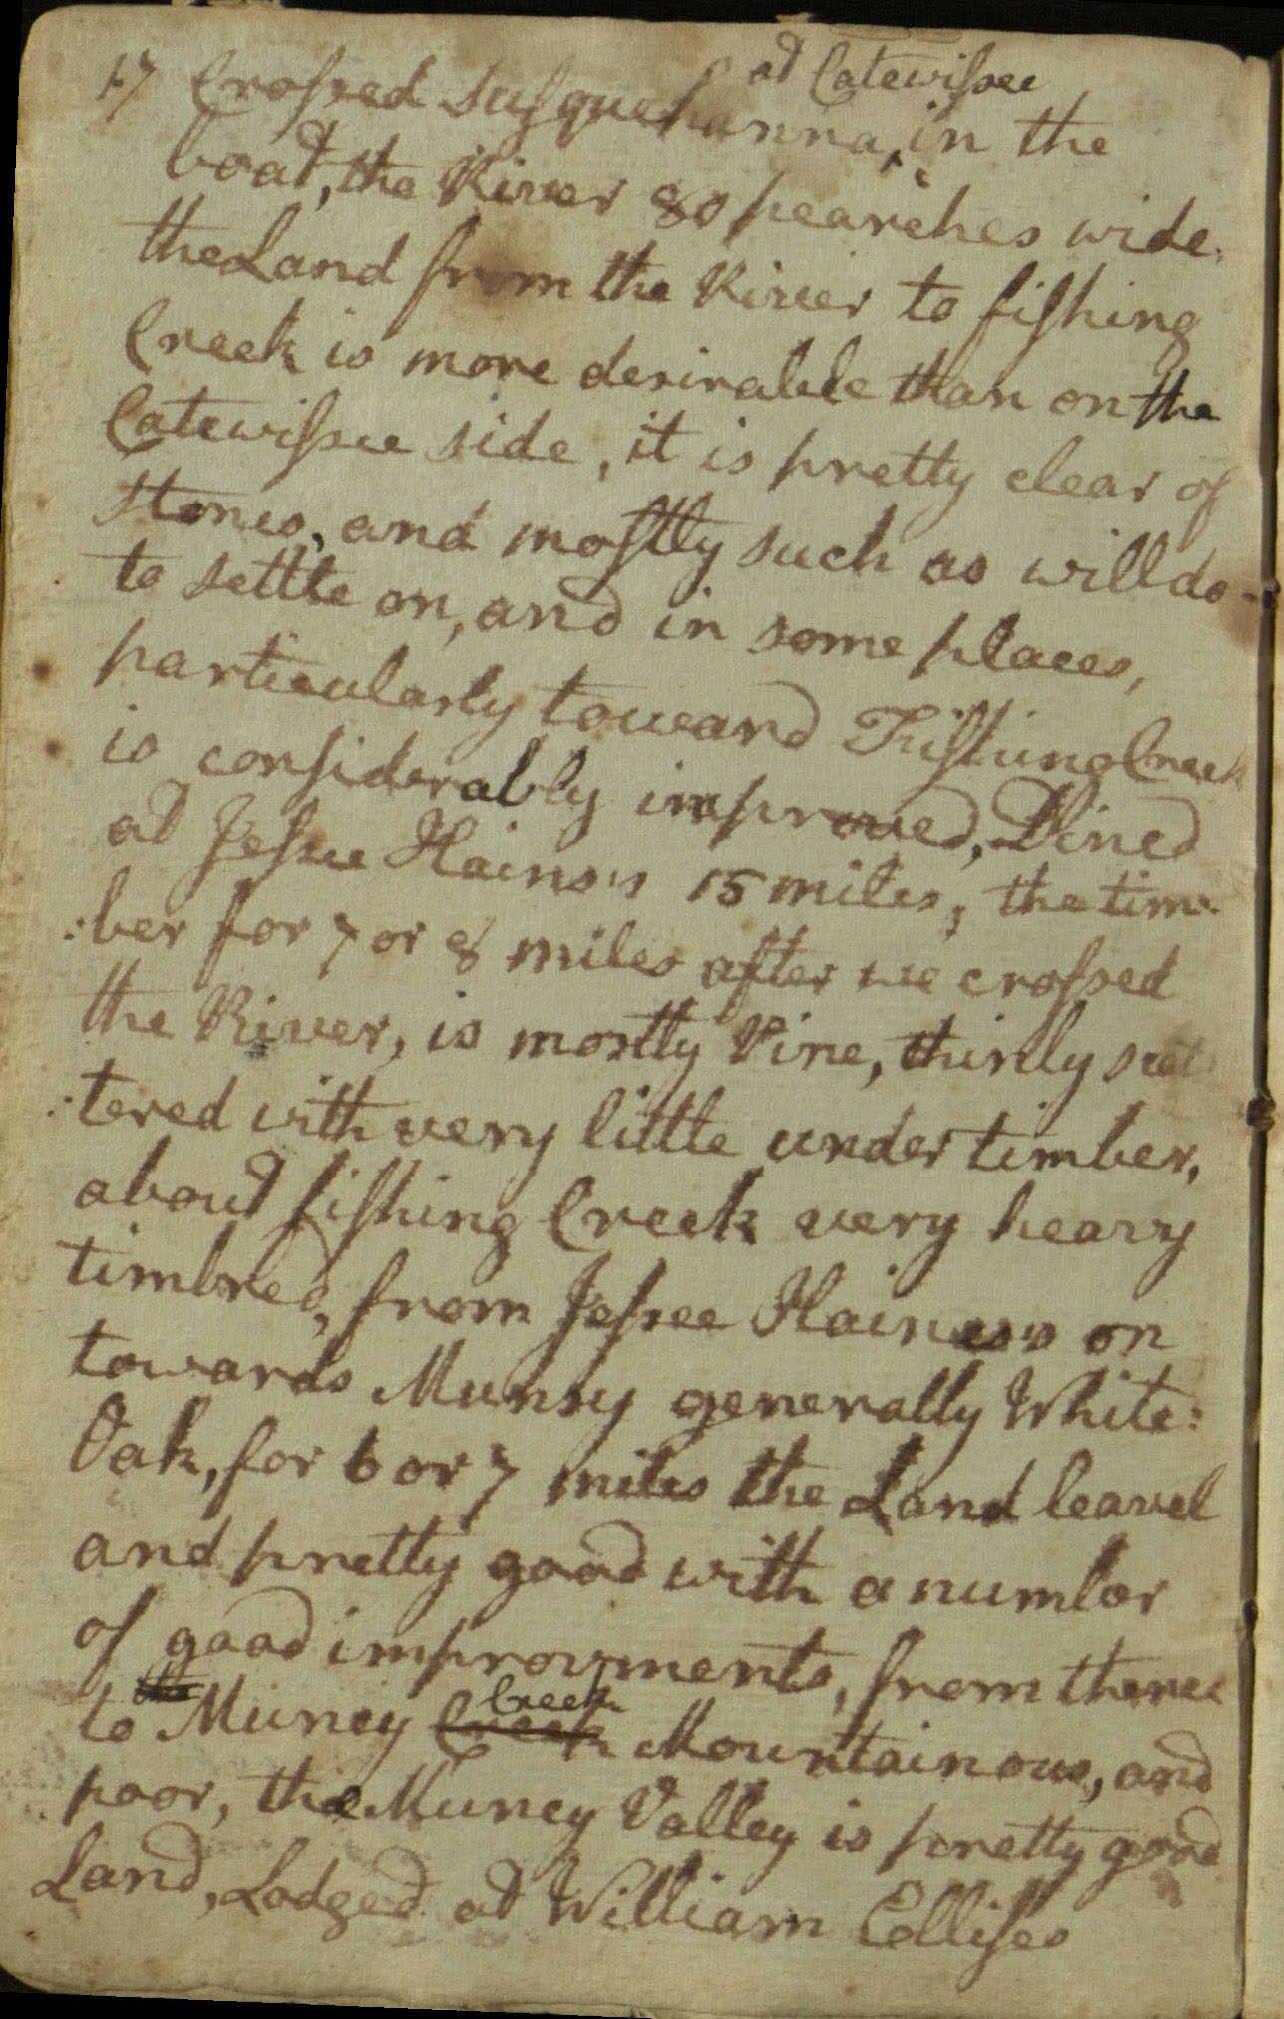 17 Crossed Susquehanna, at Catewissee in the
boat, the River 80 pearches wide,
the Land from the River to fishing
Creek is more desirable than on the
Catewissee side, it is pretty clear of
stones, and mostly such as will do -
to settle on, and in some places,
particularly toward Fishing Creek
is considerably improved, Dined
at Jessee Hains's 15 miles, the tim:
:ber for 7 or 8 miles after we crossed
the River, is mostly Pine, thinly scat
:tered with very little under timber,
about fishing Creek very heavy
timbred, from Jessee Haines's on
towards Munsy generally White:
Oak, for 6 or 7 miles the Land leavel
and pretty good with a number
of good improvments, from thence
to the Muncy Creek Creek Mountainous, and
poor, the Muncy Valley is pretty good
Land, Lodged at William Ellises